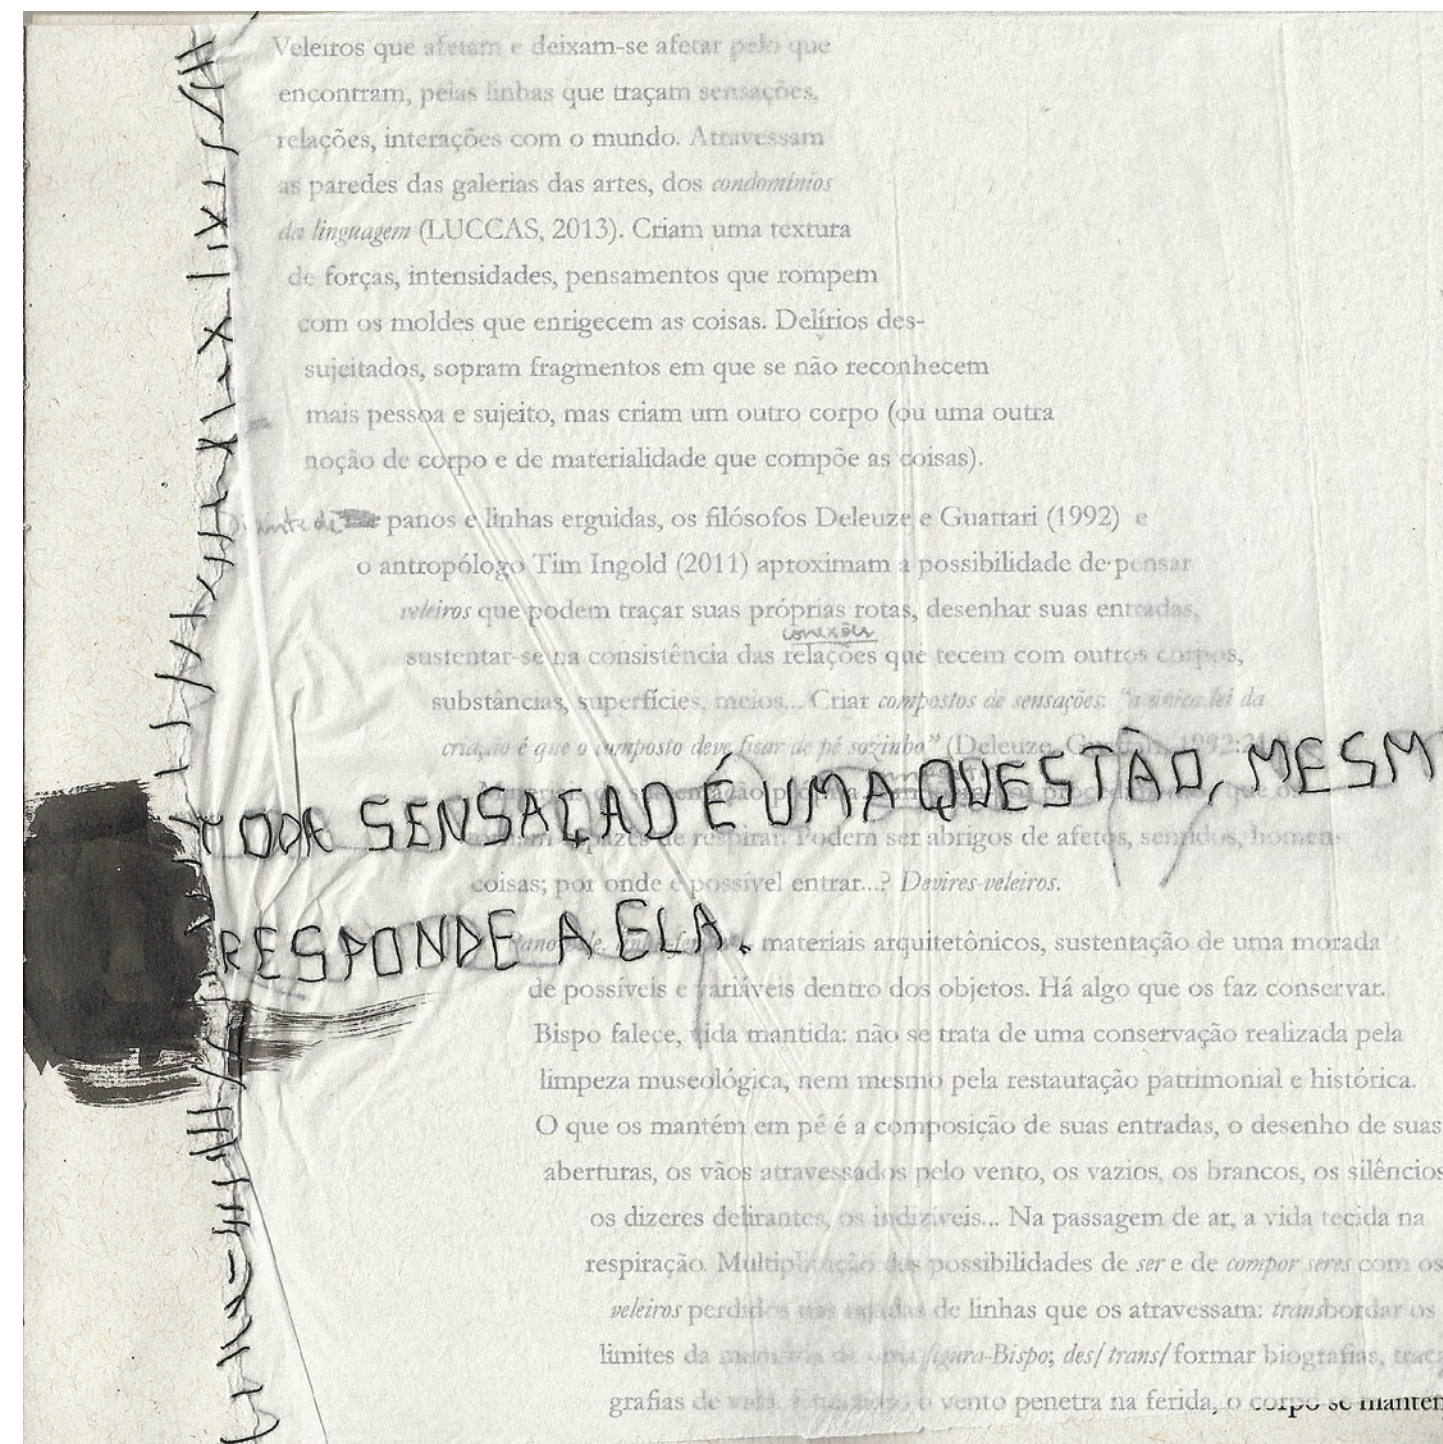 Veleiros que afetam e deixam-se afetar pelo que
encontram, pelas linhas que traçam sensações,
relações, interações com o mundo. Atravessam
as paredes das galerias das artes, dos condomínios
da linguagem (LUCCAS, 2013). Criam uma textura
de forças, intensidades, pensamentos que rompem
com os moldes que enrigecem as coisas. Delírios des-
sujeitados, sopram fragmentos em que se não reconhecem
mais pessoa e sujeito, mas criam um outro corpo (ou uma outra
noção de corpo e de materialidade que compõe as coisas).
Diante de panos e linhas erguidas, os filósofos Deleuze e Guattari (1992) e
o antropólogo Tim Ingold (2011) aproximam a possibilidade de pensar
veleiros que podem traçar suas próprias rotas, desenhar suas entradas,
conexões
sustentar-se na consistência das relações que tecem com outros corpos,
substâncias, superfícies, meios... Criar compostos de sensações: "a única lei da
criação é que o composto deve ficar de pé sozinho" (Deleuze,
TODA SENSAÇÃO É UMA QUESTÃO, MESM
de respirar. Podem ser abrigos de afetos, sentidos, homens-
coisas; por onde é possível entrar...? Devires-veleiros.
RESPONDE A ELA.
materiais arquitetônicos, sustentação de uma morada
de possíveis e variáveis dentro dos objetos. Há algo que os faz conservar.
Bispo falece, vida mantida: não se trata de uma conservação realizada pela
limpeza museológica, nem mesmo pela restauração patrimonial e histórica.
O que os mantém em pé é a composição de suas entradas, o desenho de suas
aberturas, os vãos atravessados pelo vento, os vazios, os brancos, os silêncios
os dizeres delirantes, os indizíveis... Na passagem de ar, a vida tecida na
respiração. Multiplicação das possibilidades de ser e de compor seres com os
veleiros perdidos de linhas que os atravessam: transbordar os
limites da memória de uma figura-Bispo; des/trans/formar biografias,
grafias de vento penetra na ferida, o corpo se mantém